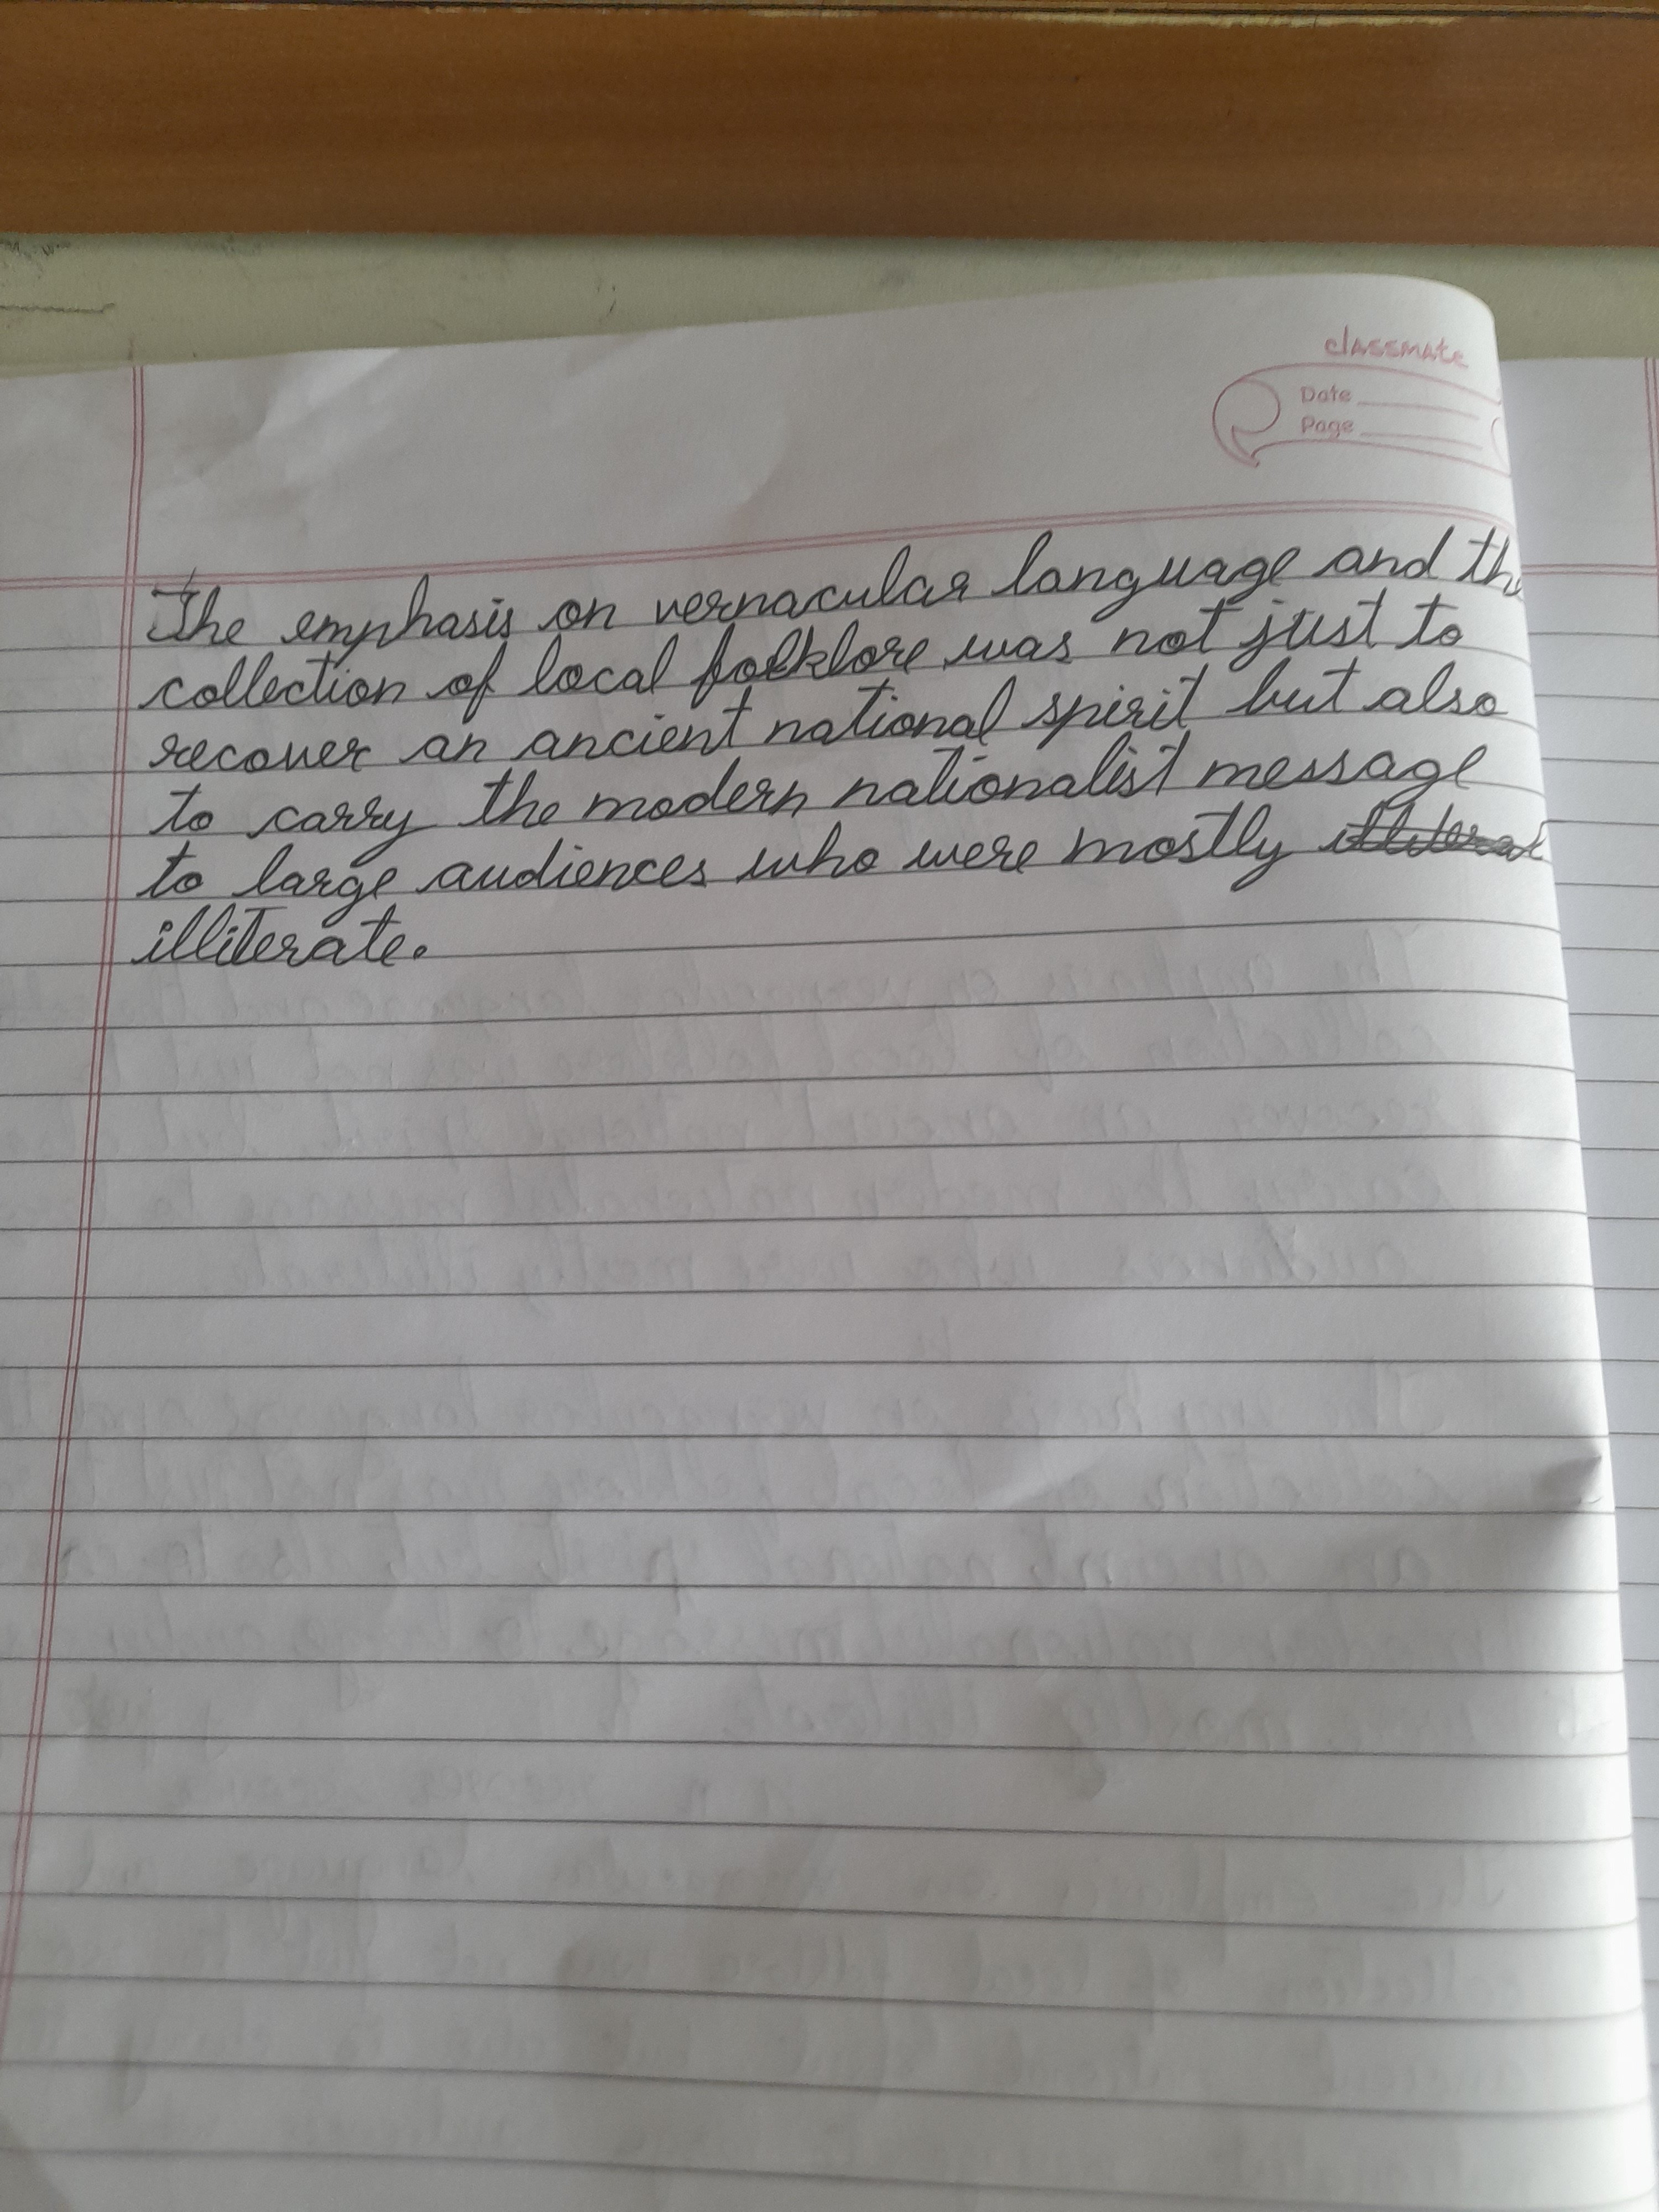 classmate
Date
Page
The emphasis on vernacular language and the
collection of local folklore was not just to
recover an ancient national spirit but also
to carry the modern nationalist message
to large audiences who were mostly
illiterate.